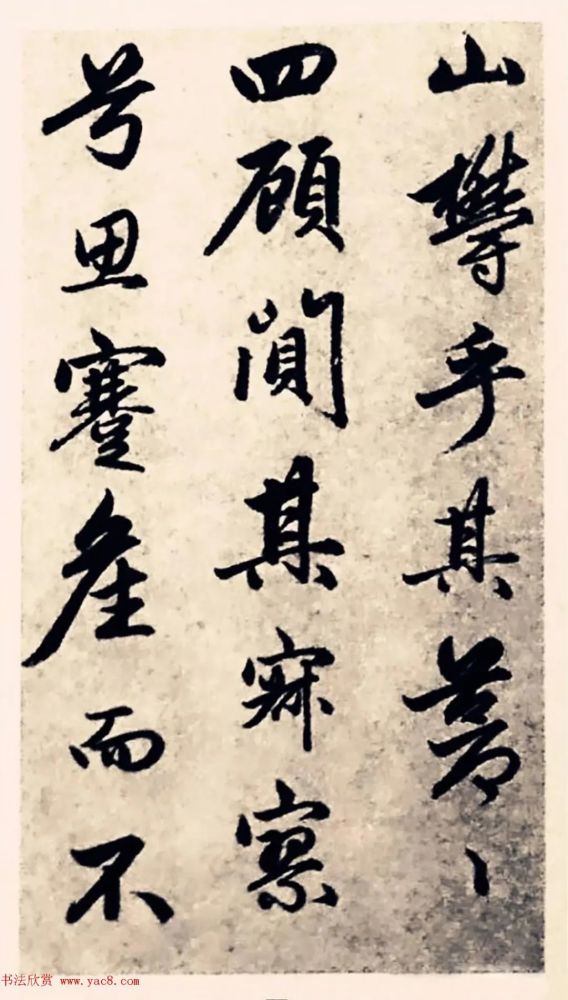 山欝乎其蒼〻
四顧闃其寂寥
兮思蹇產而不
书法欣赏 www.yac8.com